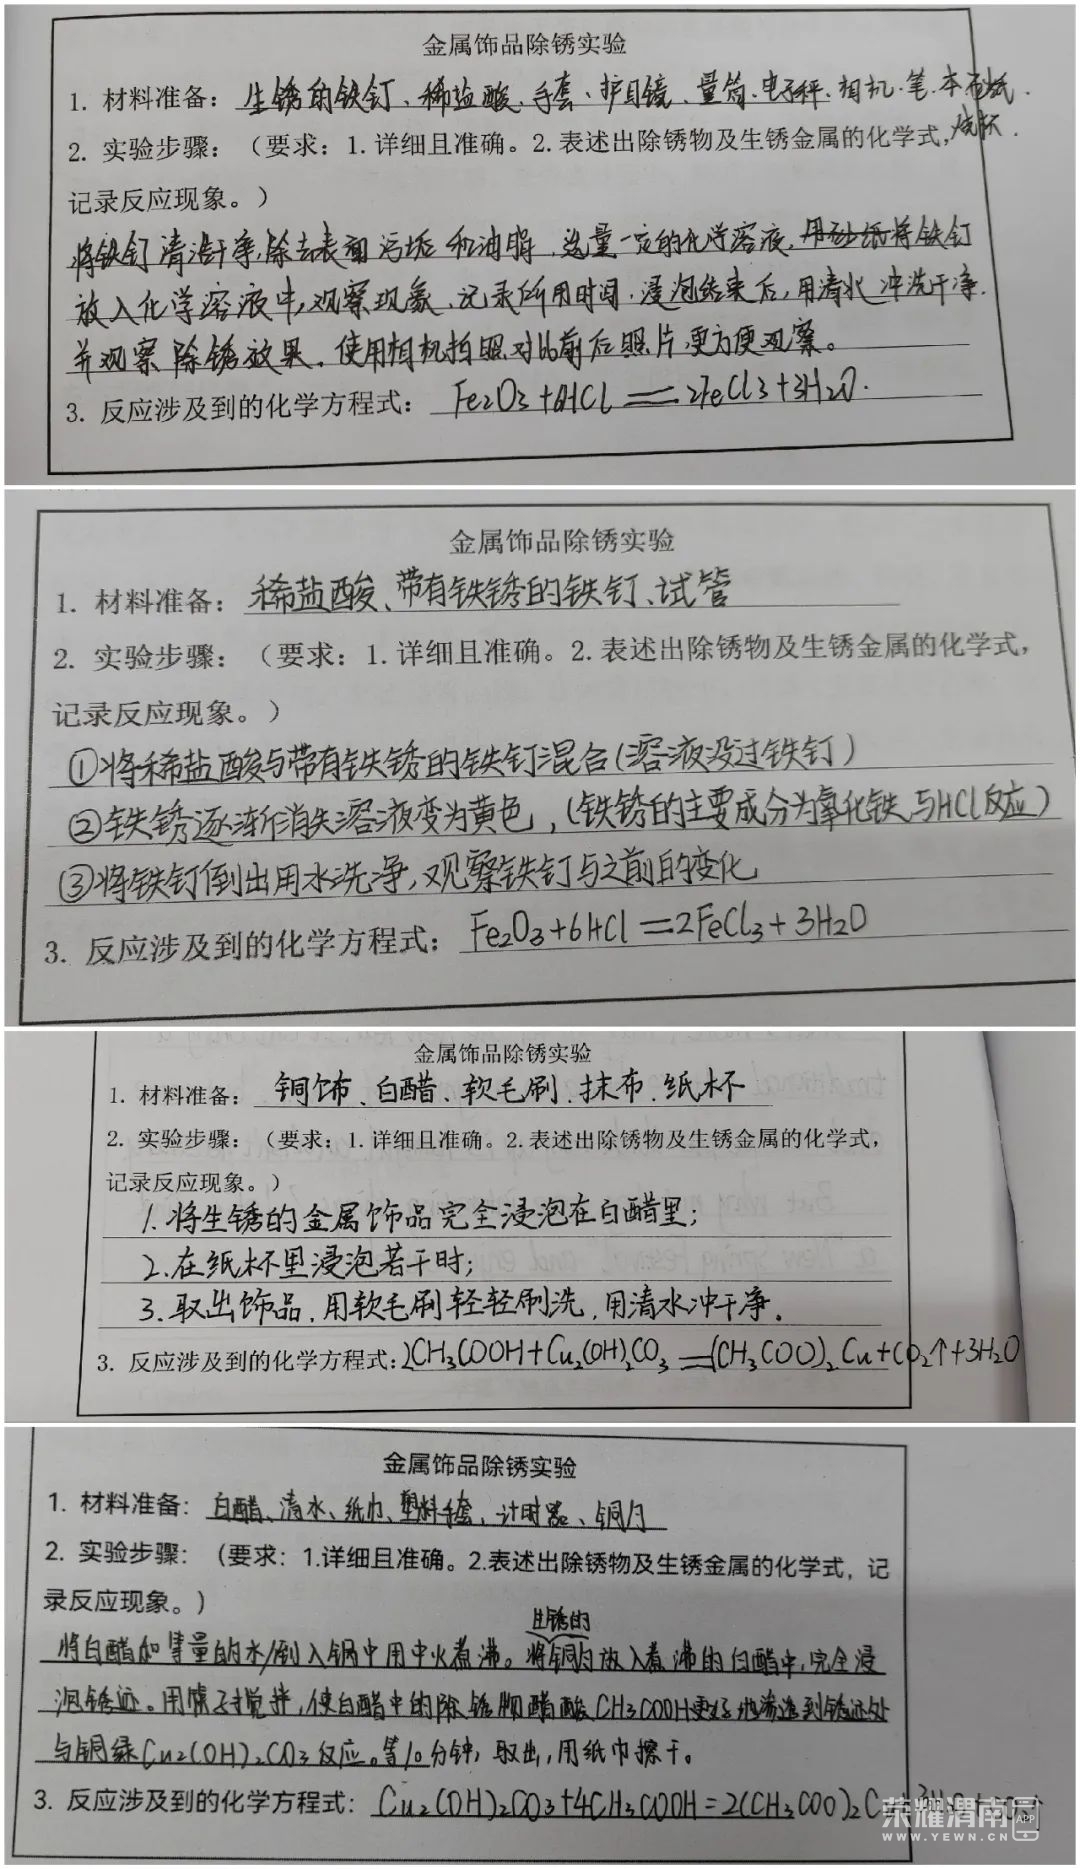 金属饰品除锈实验
1. 材料准备：生锈的铁钉、稀盐酸、手套、护目镜、量筒、电子秤、相机、笔、本
2. 实验步骤：（要求：1.详细且准确。2.表述出除锈物及生锈金属的化学式，烧杯.
记录反应现象。）
将铁钉清洁干净,除去表面污垢和油脂，选量一定的化学溶液，用砂纸将铁钉
放入化学溶液中,观察现象、记录所用时间.浸泡结束后,用清水冲洗干净.
并观察除锈效果、使用相机拍照对比前后照片,更方便观察。
3. 反应涉及到的化学方程式：Fe₂O₃+6HCl══2FeCl₃+3H₂O.
金属饰品除锈实验
1. 材料准备：稀盐酸、带有铁锈的铁钉、试管
2. 实验步骤：（要求：1.详细且准确。2.表述出除锈物及生锈金属的化学式，
记录反应现象。）
①将稀盐酸与带有铁锈的铁钉混合(溶液没过铁钉)
②铁锈逐渐消失溶液变为黄色，(铁锈的主要成分为氧化铁与HCl反应)
③将铁钉倒出用水洗净,观察铁钉与之前的变化
3. 反应涉及到的化学方程式：Fe₂O₃+6HCl=2FeCl₃+3H₂O
金属饰品除锈实验
1. 材料准备：铜饰、白醋、软毛刷、抹布、纸杯
2. 实验步骤：（要求：1.详细且准确。2.表述出除锈物及生锈金属的化学式，
记录反应现象。）
1.将生锈的金属饰品完全浸泡在白醋里;
2.在纸杯里浸泡若干时;
3.取出饰品,用软毛刷轻轻刷洗,用清水冲干净.
3. 反应涉及到的化学方程式：2CH₃COOH+Cu₂(OH)₂CO₃══(CH₃COO)₂Cu+CO₂↑+3H₂O
金属饰品除锈实验
1. 材料准备：白醋、清水、纸巾、塑料手套、计时器、铜勺
2. 实验步骤：（要求：1.详细且准确。2.表述出除锈物及生锈金属的化学式，记
录反应现象。）
生锈的
将白醋加等量的水/倒入锅中用中火煮沸。将铜勺放入煮沸的白醋中,完全浸
泡锈迹。用筷子搅拌,使白醋中的除锈物醋酸CH₃COOH更好地渗透到锈迹处
与铜绿Cu₂(OH)₂CO₃反应。等10分钟,取出,用纸巾擦干。
3. 反应涉及到的化学方程式：Cu₂(OH)₂CO₃+4CH₃COOH=2(CH₃COO)₂C
荣耀渭南 APP
WWW.YEWN.CN